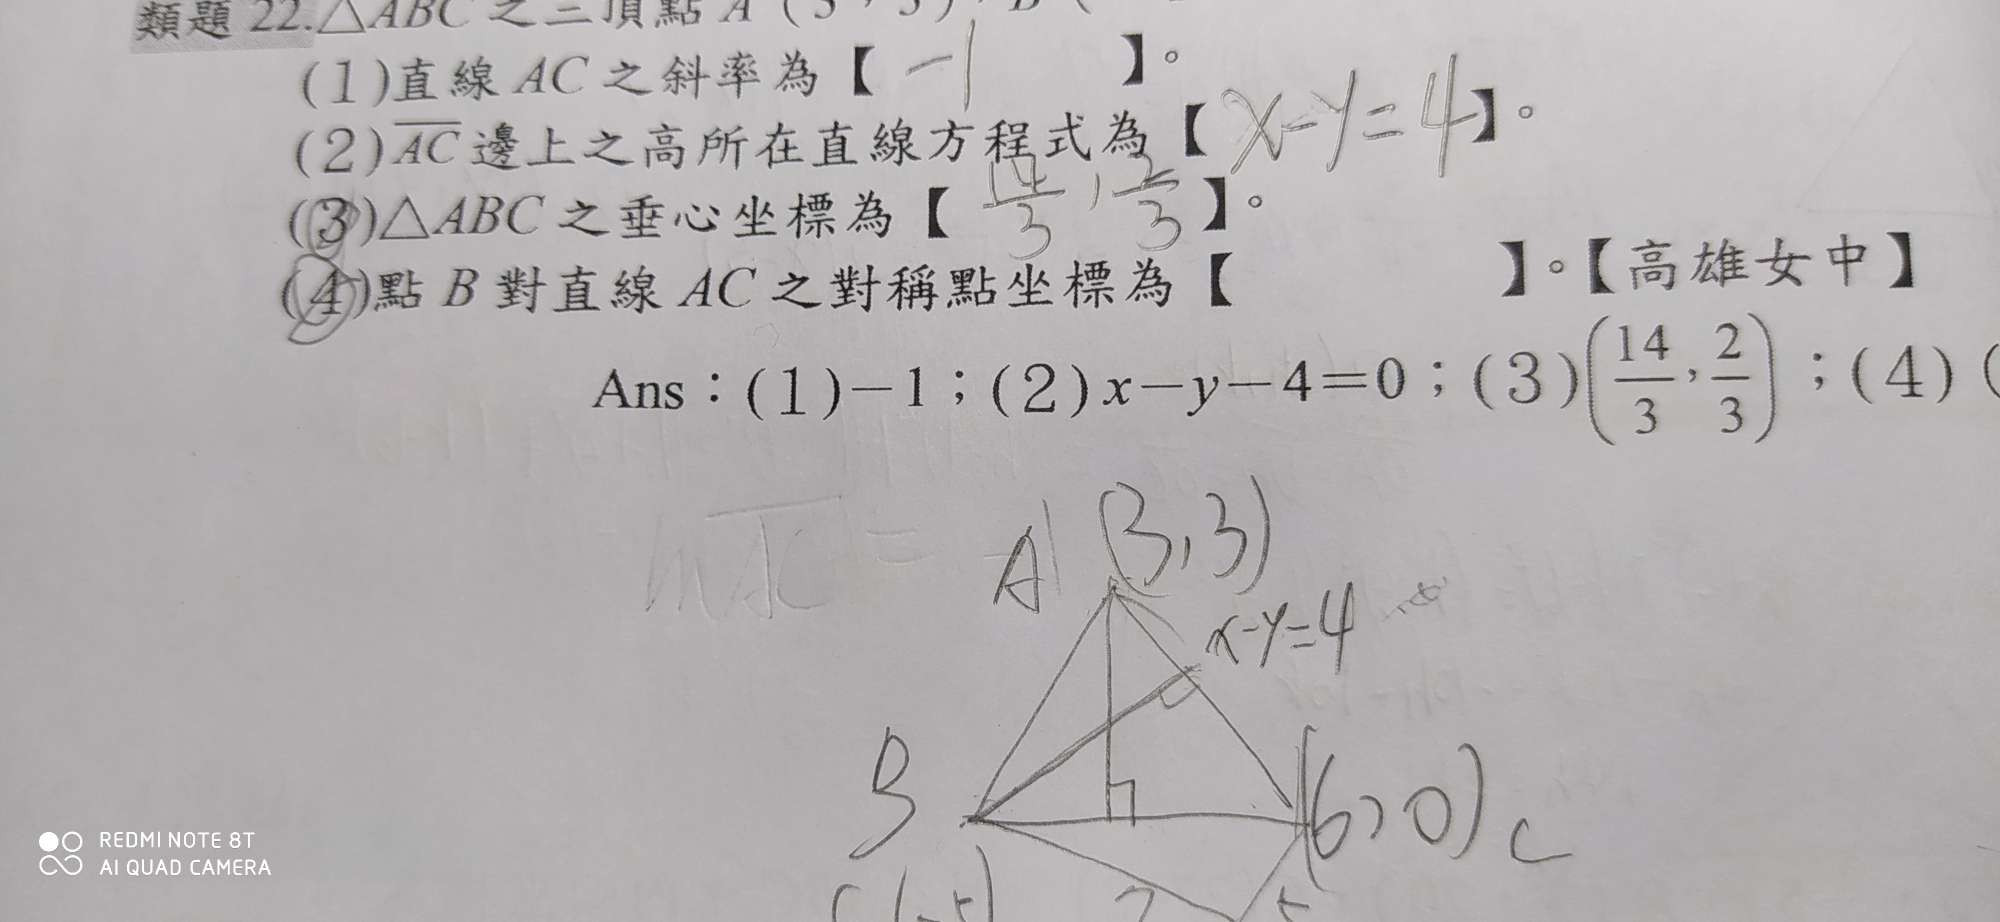 類題 22.△ABC 之三頂點 A (3,3)、B (
(1)直線 AC 之斜率為【 -1 】。
(2)AC 邊上之高所在直線方程式為【 x-y=4 】。
(3)△ABC 之垂心坐標為【 14/3 , 2/3 】。
(4)點 B 對直線 AC 之對稱點坐標為【 】。【高雄女中】
Ans:(1)-1;(2)x-y-4=0;(3)(14/3,2/3);(4)(
mAC = -1
A (3,3)
x-y=4
B
(6,0) C
REDMI NOTE 8T
AI QUAD CAMERA